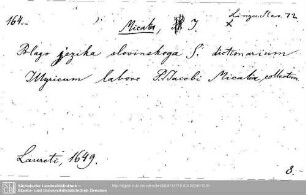 164. Micalia, J. Lingu. Slav. 72
x
Blago jezika slovinskoga s. dictionarium
Illyricum labore P. Jacobi Micalia collectum
Laureti, 1649.
8.
Sächsische Landesbibliothek -
Staats- und Universitätsbibliothek Dresden